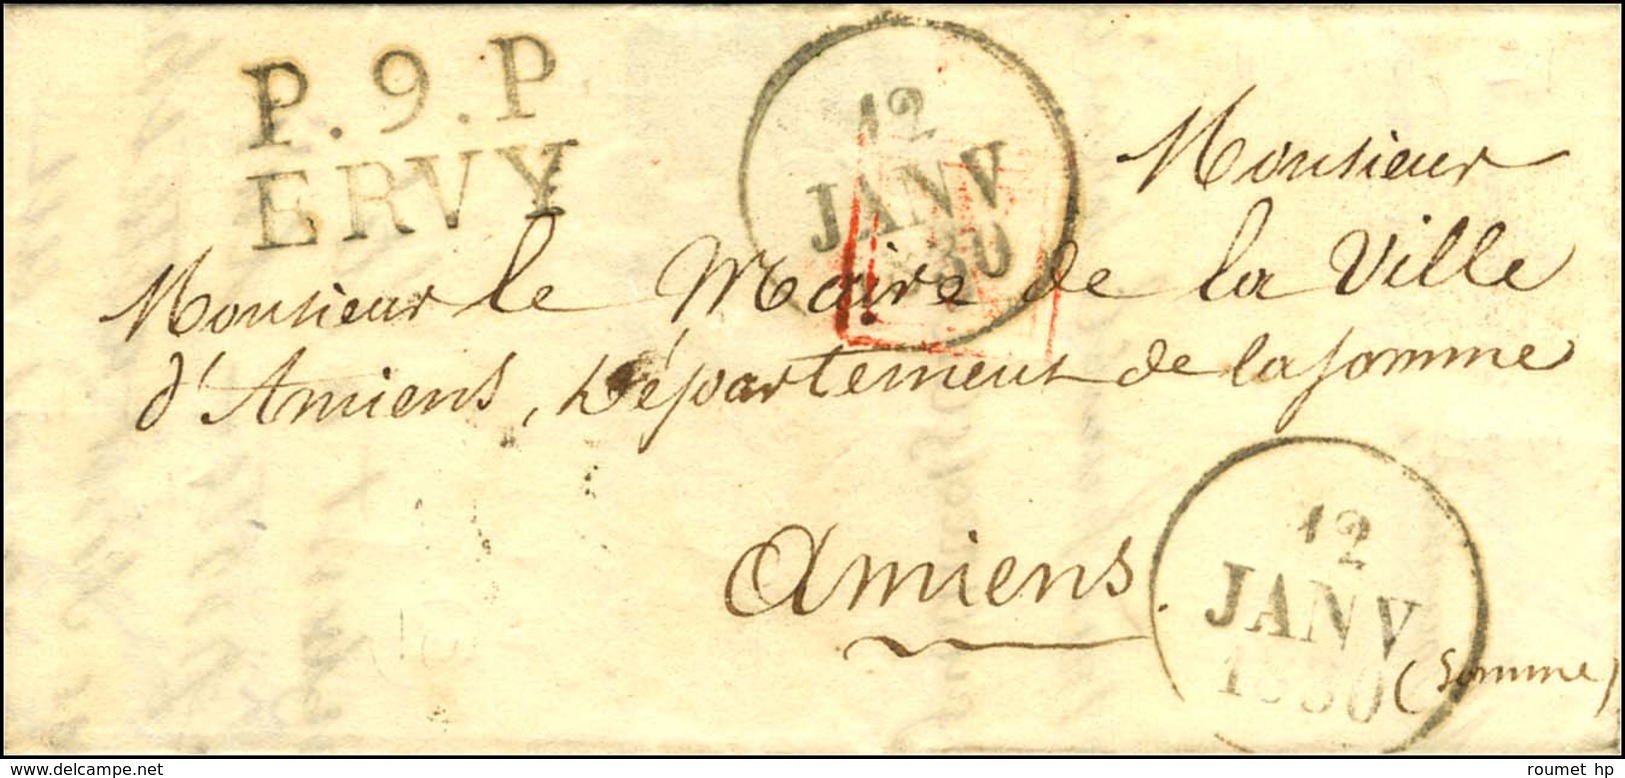 P. 9. P
ERVY
12
JANV
1830
Monsieur
Monsieur le Maire de la Ville
d'Amiens, Département de la Somme
Amiens.
12
JANV
1830
(Somme)
www.delcampe.net
roumet hp